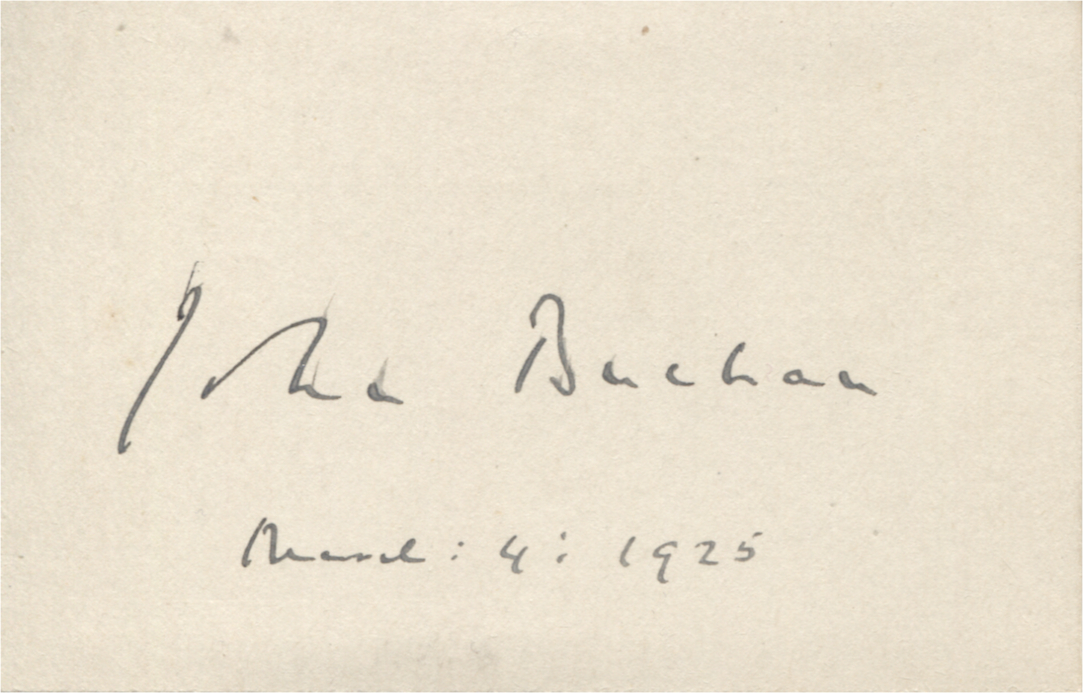 John Buchan
March : 4 : 1925